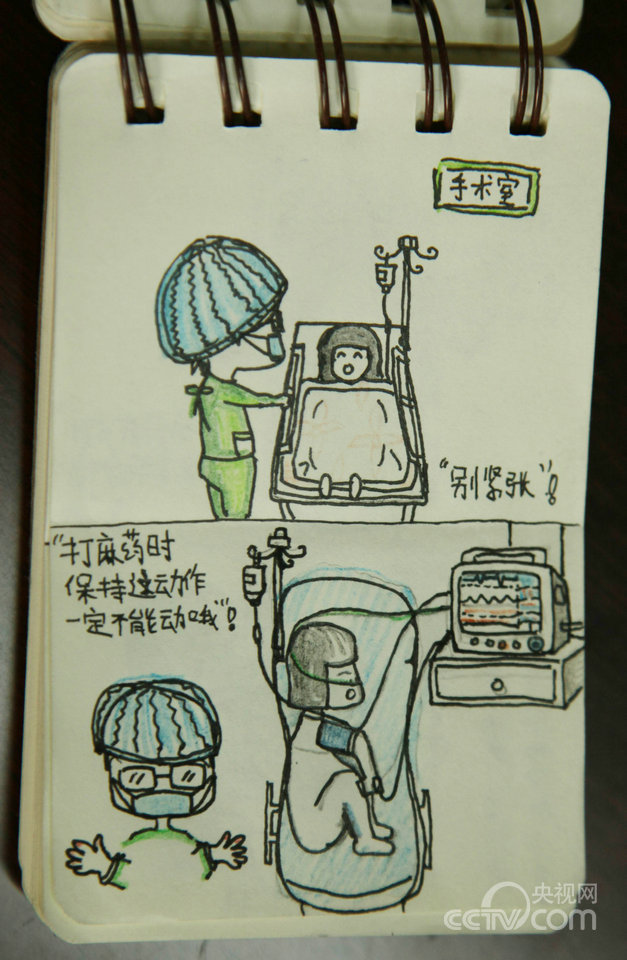 手术室
"别紧张"!
"打麻药时
保持这动作
一定不能动哦"!
央视网
CCTV.com